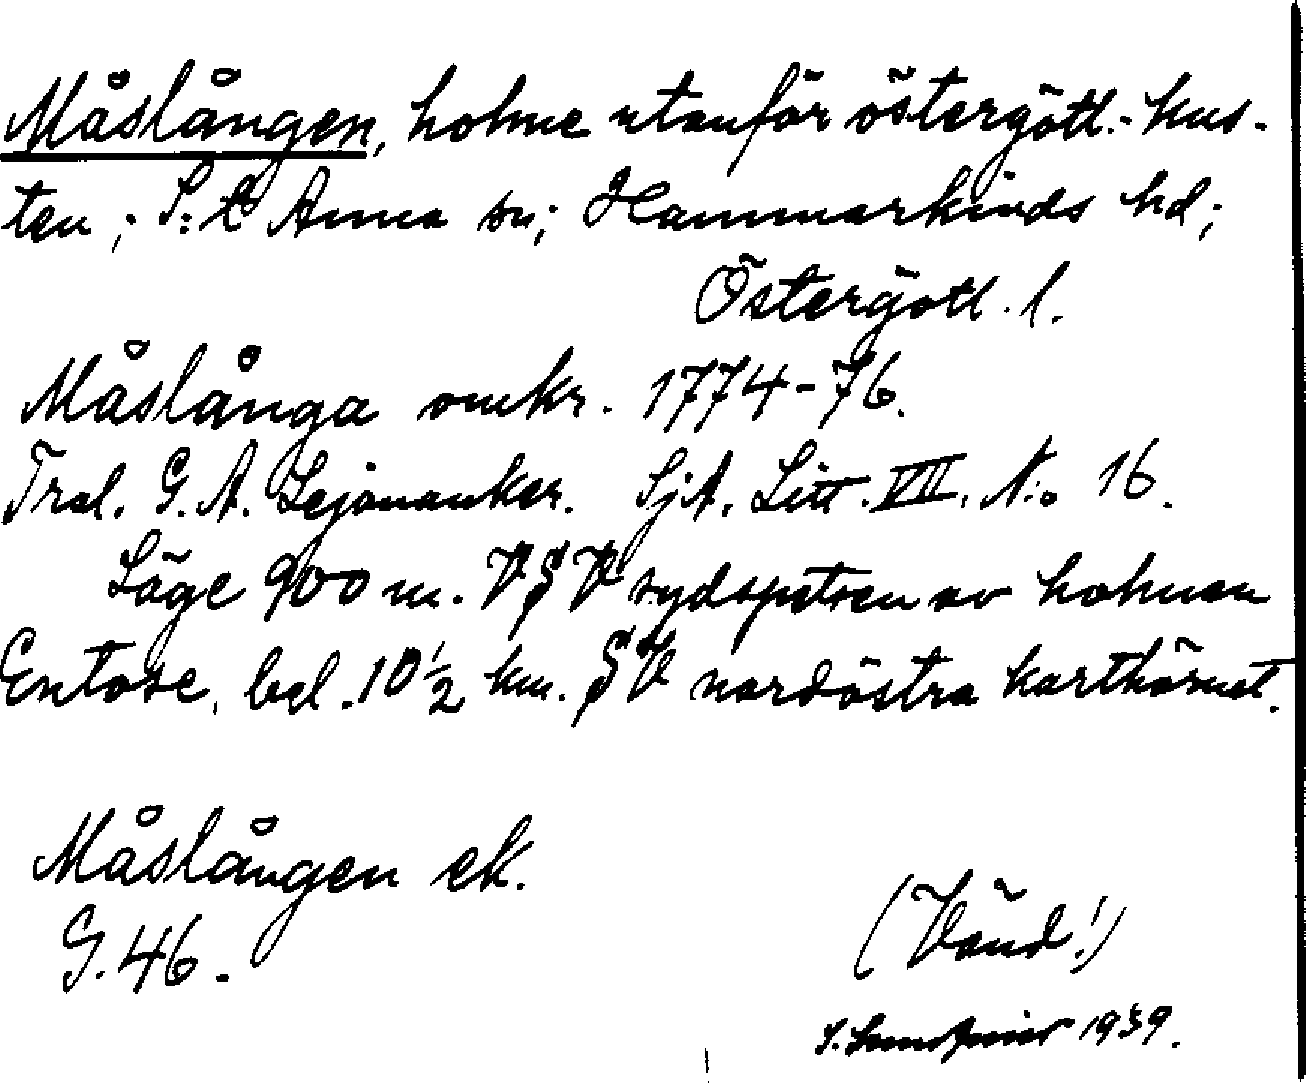 Måslången, holme utanför östergötl.- kus-
ten; S:t Anna sn; Hammarkinds hd;
Östergötl. l.
Måslånga omkr. 1774-76.
Tral. G. A. Lejonanker. SjA. Litt. VII. N:o 16.
Läge 900 m. VSV sydspetsen av holmen
Entose, bel. 10½ km. SV nordöstra karthörnet.
Måslången ek.
G. 46.
(Vänd!)
1939.